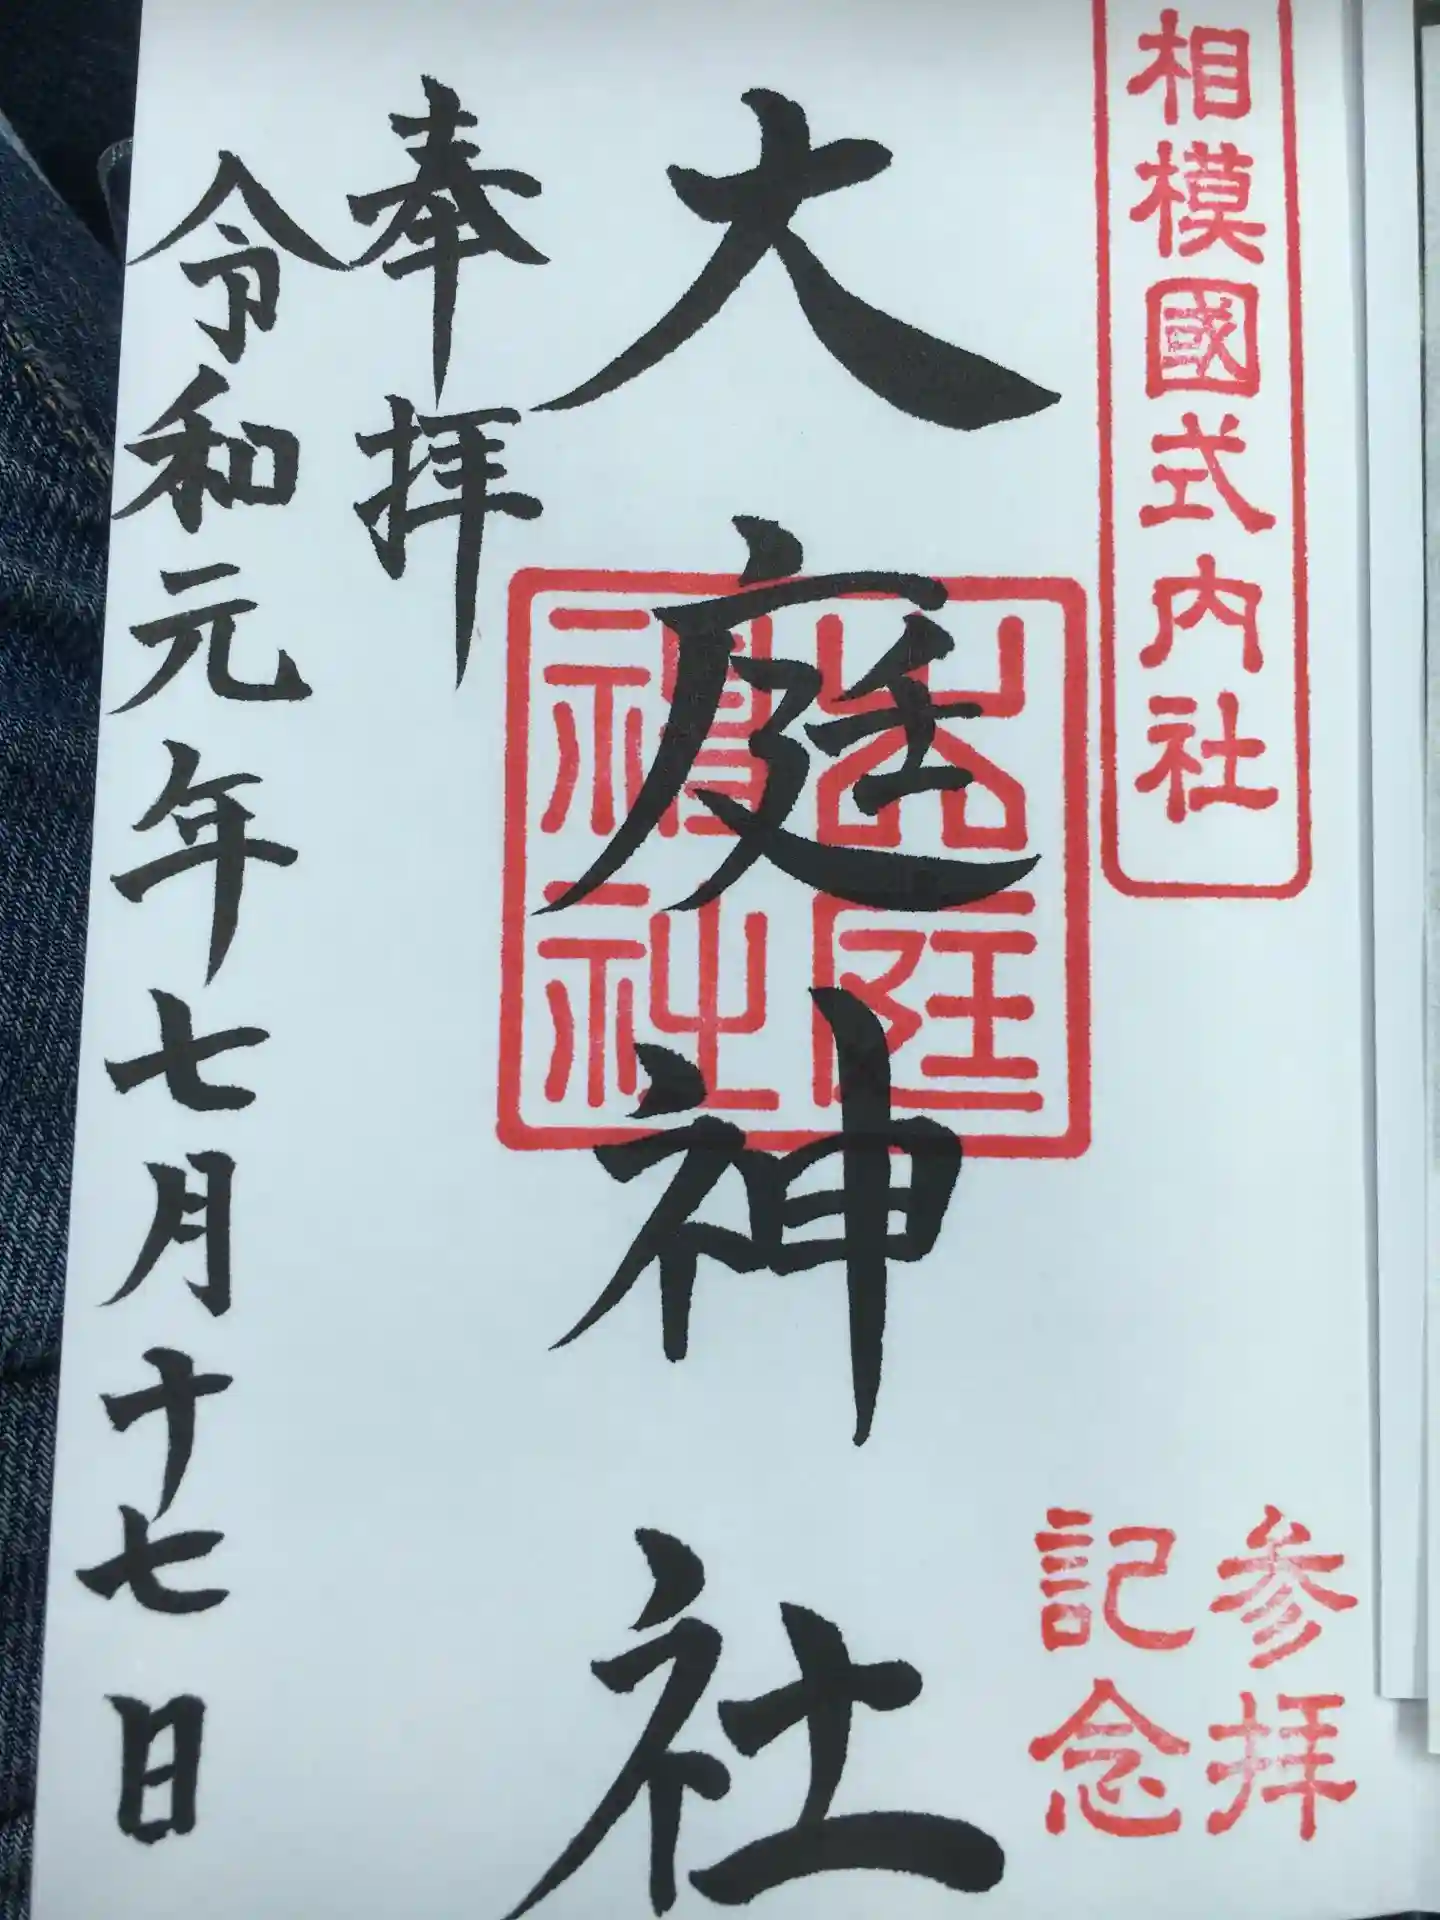 相模國式内社
参拝
記念
大庭神社
大庭
神社
奉拝
令和元年七月十七日